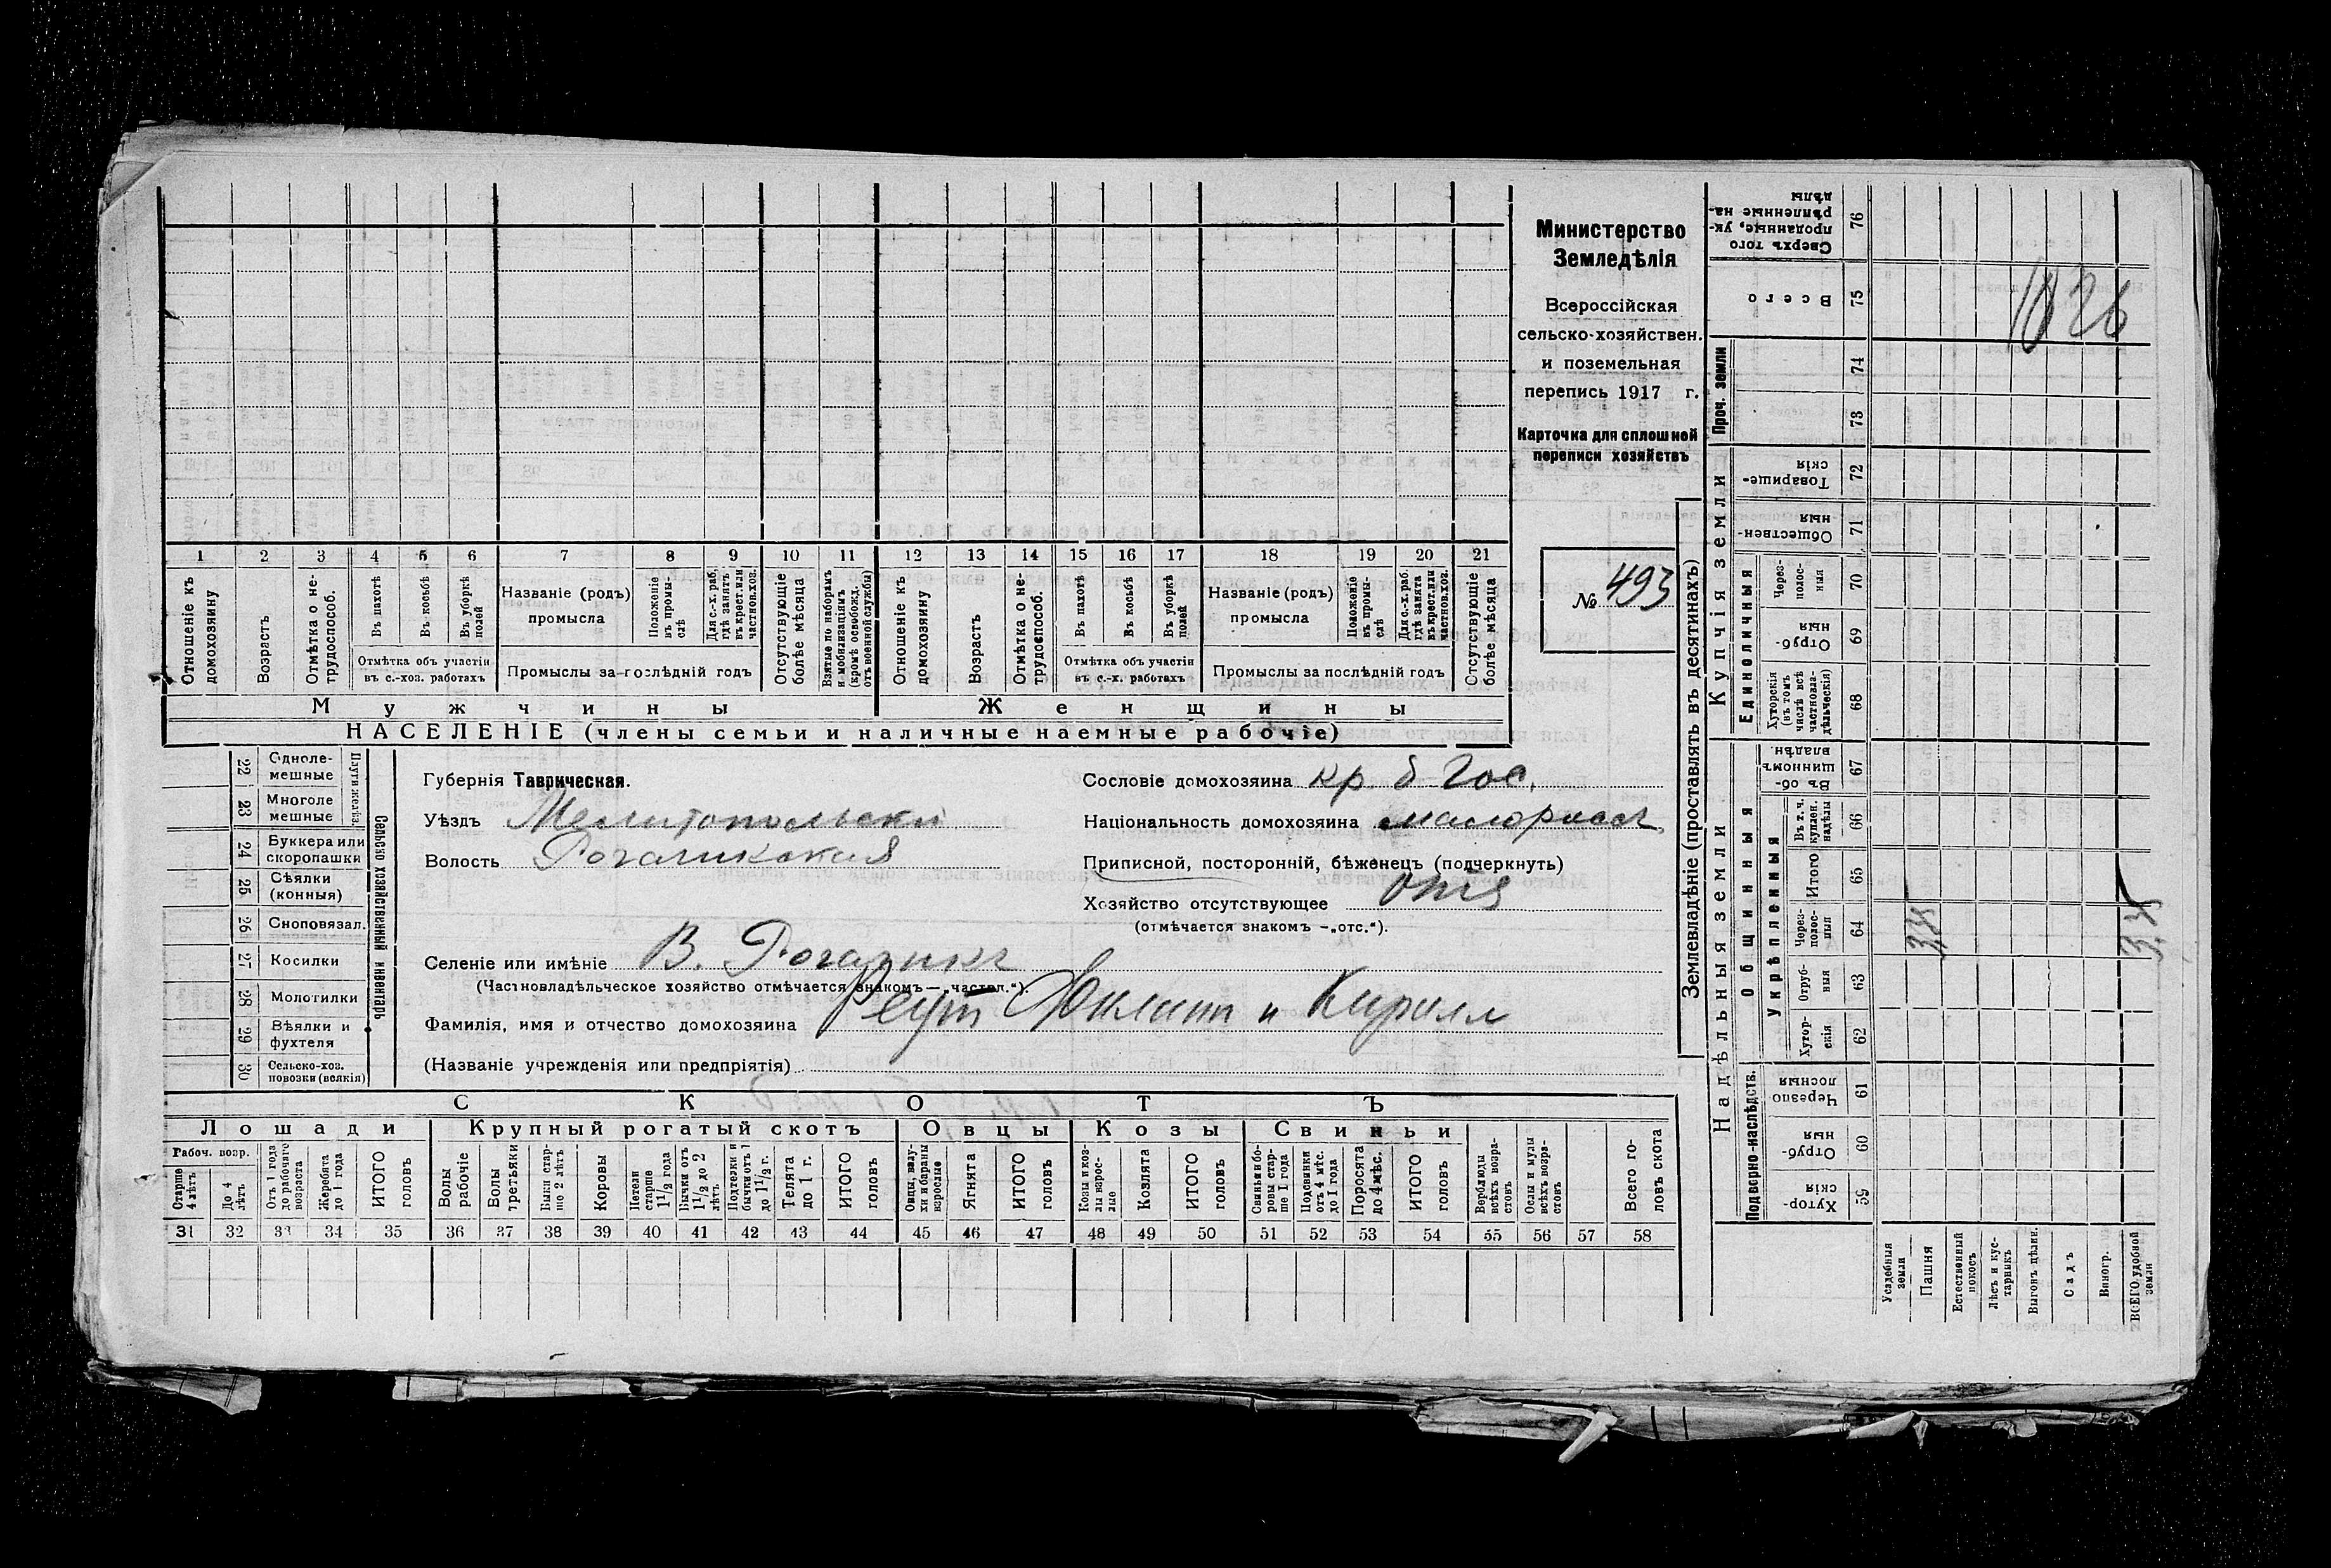 Министерство
Земледѣлія
Всероссійская
сельско-хозяйствен.
и поземельная
перепись 1917 г.
Карточка для сплошной
переписи хозяйствъ
№ 493
1 2 3 4 5 6 7 8 9 10 11 12 13 14 15 16 17 18 19 20 21
Отношеніе къ домохозяину
Возрастъ
Отмѣтка о не-трудоспособ.
Въ пахотѣ
Въ косьбѣ
Въ уборкѣ полей
Названіе (родъ) промысла
Положеніе въ промы-слѣ
Для с.-х. раб. гдѣ занятъ въ крест. или частнов. хоз.
Отсутствующіе болѣе мѣсяца
Взятые по наборамъ и мобилизаціямъ (кромѣ освобожд. отъ военной службы)
Отношеніе къ домохозяину
Возрастъ
Отмѣтка о не-трудоспособ.
Въ пахотѣ
Въ косьбѣ
Въ уборкѣ полей
Названіе (родъ) промысла
Положеніе въ промы-слѣ
Для с.-х. раб. гдѣ занята въ крест. или частнов. хоз.
Отсутствующіе болѣе мѣсяца
Отмѣтка объ участіи въ с.-хоз. работахъ
Промыслы за послѣдній годъ
Отмѣтка объ участіи въ с.-х. работахъ
Промыслы за послѣдній годъ
Мужчины Женщины
НАСЕЛЕНІЕ (члены семьи и наличные наемные рабочіе)
22 Одноле-мешные
23 Многоле мешные
Плуги желѣз.
24 Буккера или скоропашки
25 Сѣялки (конныя)
26 Сноповязал.
27 Косилки
28 Молотилки
29 Вѣялки и фухтеля
30 Сельско-хоз. повозки (всякія)
Сельско хозяйственный инвентарь
Губернія Таврическая.
Уѣздъ Мелитопольски
Волость Рогачикская
Сословіе домохозяина кр. б Гос.
Національность домохозяина малоросс
Приписной, посторонній, бѣженецъ (подчеркнуть)
Хозяйство отсутствующее
(отмѣчается знакомъ —„отс.“).
Селеніе или имѣніе В. Рогачикъ
(Частновладѣльческое хозяйство отмѣчается знакомъ—„частвл.“).
Фамилія, имя и отчество домохозяина Реут и Кирилл
(Названіе учрежденія или предпріятія)
СКОТЪ
Лошади Крупный рогатый скотъ Овцы Козы Свиньи
Рабоч. возр.
Старше 4 лѣтъ
До 4 лѣтъ
Отъ 1 года до рабочаго возраста
Жеребята до 1 года
ИТОГО головъ
Волы рабочіе
Волы третьяки
Быки стар-ше 2 лѣтъ
Коровы
Нетели старше 1½ года
Бычки отъ 1½ до 2 лѣтъ
Подтелки и бычки отъ 1 до 1½ г.
Телята до 1 г.
ИТОГО головъ
Овцы, валу-хи и бараны взрослые
Ягнята
ИТОГО головъ
Козы и коз-лы взрос-лые
Козлята
ИТОГО головъ
Свиньи и бо-ровы стар-ше 1 года
Подсвинки отъ 4 мѣс. до 1 года
Поросята до 4 мѣс.
ИТОГО головъ
Верблюды всѣхъ возра-стовъ
Ослы и мулы всѣхъ возра-стовъ
Всего го-ловъ скота
31 32 33 34 35 36 37 38 39 40 41 42 43 44 45 46 47 48 49 50 51 52 53 54 55 56 57 58
Землевладѣніе (проставлять въ десятинахъ)
Надѣльныя земли Купчія земли Проч. земли
Подворно-наслѣдств.
Общинныя
Укрѣпленныя
Единоличныя
76 Сверхъ того проданные, ук-рѣпленные на-дѣлы
75 Всего
74
73
72 Товарище-скія
71 Обществен-ныя
70 Через-полос-ныя
69 Отруб-ныя
68 Хуторскія (въ томъ числѣ всѣ частновла-дѣльческія)
67 Въ об-щинномъ владѣн.
66 Въ т. ч. куплен. надѣлы
65 Итого
64 Через-полос-ныя
63 Отруб-ныя
62 Хутор-скія
61 Черезпо лосныя
60 Отруб-ныя
59 Хутор-скія
Усадебныя земли
Пашня
Естественный покосъ
Лѣсъ и кус-тарникъ
Выгонъ цѣлин.
Садъ
Виногр.
ВСЕГО удобной земли